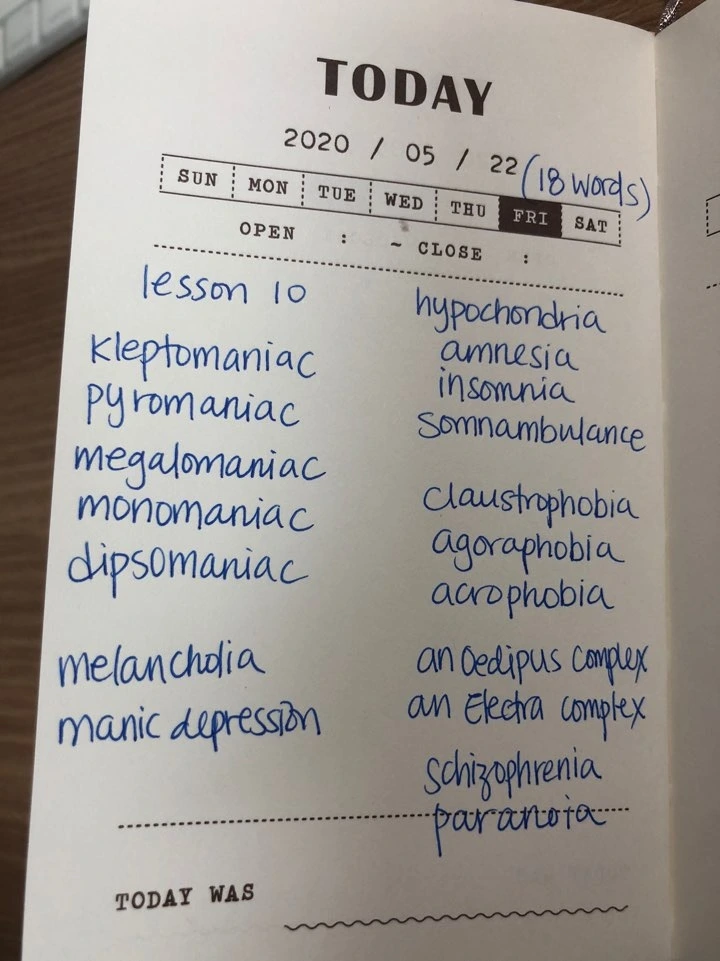 TODAY
2020 / 05 / 22 (18 words)
SUN MON TUE WED THU FRI SAT
OPEN : ~ CLOSE :
lesson 10
kleptomaniac
pyromaniac
megalomaniac
monomaniac
dipsomaniac
melancholia
manic depression
hypochondria
amnesia
insomnia
somnambulance
claustrophobia
agoraphobia
acrophobia
an Oedipus complex
an Electra complex
schizophrenia
paranoia
TODAY WAS